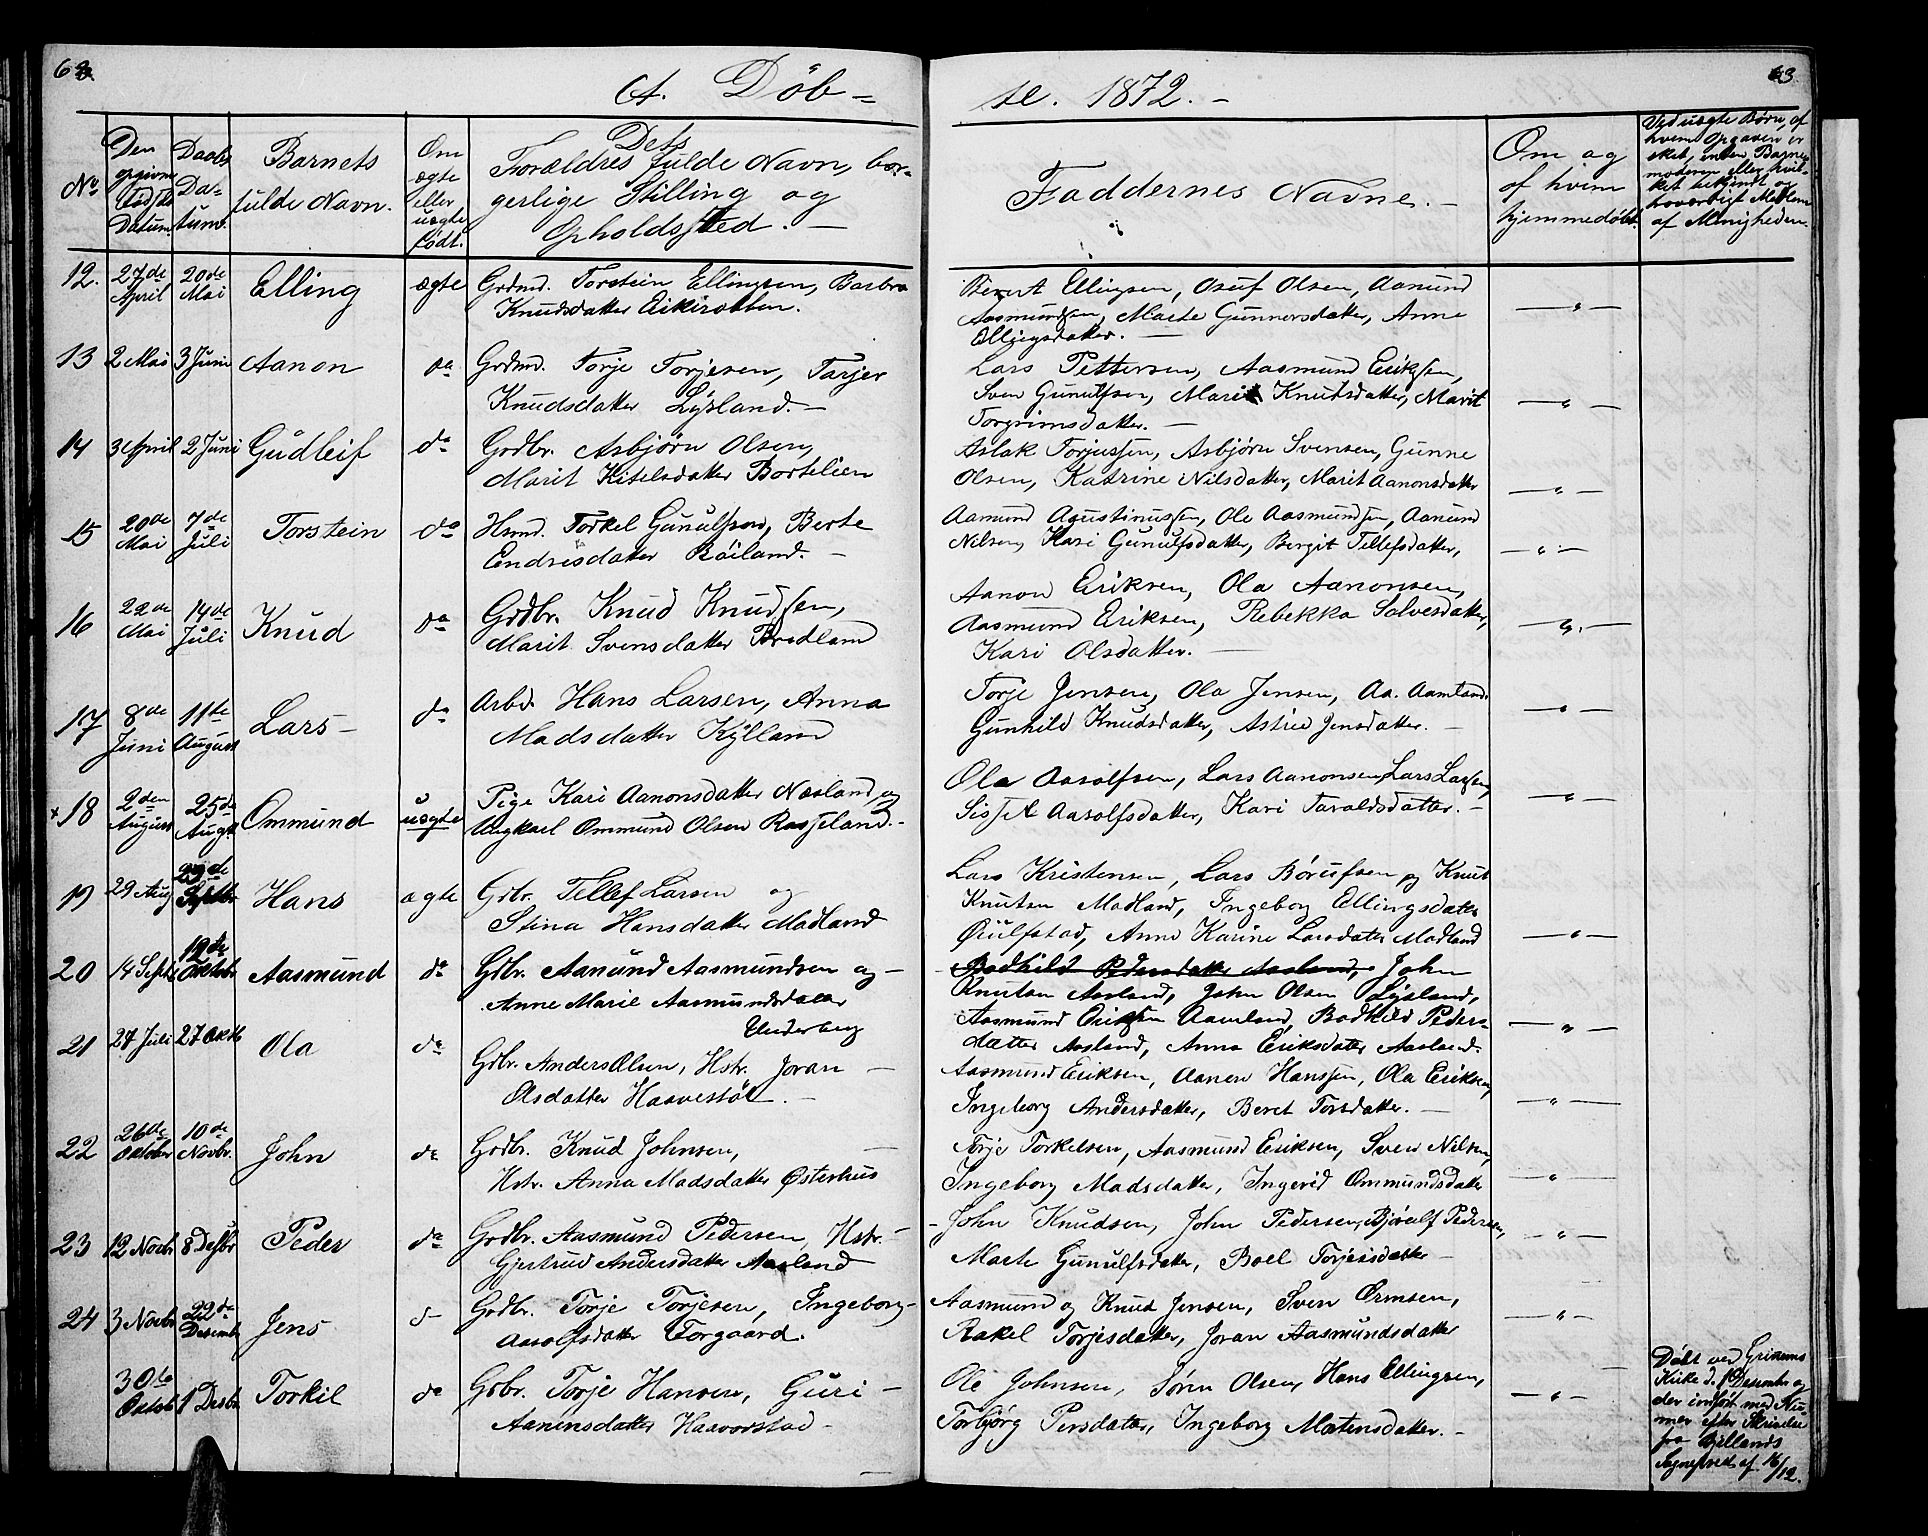 63.
A. Döb-
se. 1872.-
No
Den opgivne Fødsels Datum.
Daabs Da-tum.
Barnets fulde Navn.
Om ægte eller uægte født.
Dets Forældres fulde Navn, bor-gerlige Stilling og Opholdssted.-
Faddernes Navne.-
Om og af hvem hjemmedøbt.
Ved uægte Børn, af hvem Opgaven er sket, enten Barnemoderen eller hvilket bekjendt og hæderligt Medlem af Menigheden.
12. 27de April 20de Mai Elling ægte Grdmd. Torstein Ellingsen, Barbro
Knudsdatter Eikerotten.
Berent Ellingsen, Osuf Olsen, Aanund
Aasmundsen, Marte Gunnersdatter, Anne
Ellingsdatter.-
13 2 Mai 3 Juni Aanon do Grdmd. Torje Torjesen, Tarjer
Knudsdatter Lysland.-
Lars Pettersen, Aasmund Eriksen,
Sven Gunulfsen, Marit Knutsdatter, Marit
Torgrimsdatter.-
14 3 April 2 Juni Gudleif do Grdbr. Asbjørn Olsen,
Marit Kitelsdatter Bortelien
Aslak Torjussen, Asbjørn Svensen, Gunne
Olsen, Katrine Nilsdatter, Marit Aanonsdatter
15 20de Mai 7de Juli Torstein do Hsmd. Torkel Gunulfsen, Berte
Endresdatter Röiland.-
Aamund Agustinussen, Ole Aasmundsen, Aanund
Nilsen, Kari Gunulfsdatter, Bergit Tellefsdatter,
16 22de Mai 14de Juli Knud do Grdbr. Knud Knudsen,
Marit Svensdatter Bredland
Aanon Eriksen, Ola Aanonsen,
Aasmund Eriksen, Rebekka Salvesdatter,
Kari Olsdatter.-
17 8de Juni 11te August Lars- do Arbd. Hans Larsen, Anna
Madsdatter Kylland
Torje Jensen, Ola Jensen, Aa. Aamland
Gunhild Knudsdatter, Astrid Jensdatter.-
+18 2den August 25de Augst. Ommund uægte Pige Kari Aanonsdatter Næsland, og
Ungkarl Ommund Olsen Rosseland.-
Ola Aasolfsen, Lars Aanonsen, Lars Larsen,
Sissel Aasolfsdatter, Kari Taraldsdatter.-
19 29 Aug 29de Septbr Hans ægte Grbr. Tellef Larsen og
Stina Hansdatter Madland
Lars Kristensen, Lars Börufsen og Knut
Knutsen Madland, Ingeborg Ellingsdatter
Qvilfstad, Anne Karine Larsdatter Madland
20 14 Septbr 19de Oktobr. Aasmund do Gdbr. Aanund Aasmundsen og -
Anne Marie Aasmundsdatter
Underberg
Bodhild Pedersdatter Aasland, John
Knutsen Aasland, John Olsen Lysland,
Aasmund Eriksen Aamland, Bodhild Peders-
datter Aasland, Anna Eriksdatter Aasland.
21 27 Juli 27 Oktb Ola do Gdbr. Anders Olsen, Hstr. Joran -
Olsdatter Haavestöl.-
Aasmund Eriksen, Aanen Hanssen, Ola Eriksen,
Ingeborg Andersdatter, Beret Torsdatter.-
22 26de Oktober 10de Novbr. John do Grdbr. Knud Johnsen, -
Hstr. Anna Madsdatter Østerhus
Torje Torkelsen, Aasmund Eriksen, Sven Nilsen,
Ingeborg Madsdatter, Ingerid Ommundsdatter
23 12 Novbr 8 Desbr Peder do Grdbr. Aasmund Pedersen, Hstr.-
Gjertrud Andersdatter Aasland
- John Knudsen, John Pedersen, Bjorulf Pedersen,
Marte Gunulfsdatter, Boel Torjesdatter -
24 3 Novbr 22de Decembr Jens d- Grdbr. Torje Torjesen, Ingeborg-
Aasolfsdatter Torgaard.
Aasmund og Knud Jensen, Sven Ormsen,
Rakel Torjesdatter, Joran Aasmundsdatter
30te Oktob 1 Desbr Torkil do Grbr. Torje Hansen, Guri -
Aanensdatter Haavorstad -
Ole Johnsen, Sören Olsen, Hans Ellingsen,
Torbjørg Persdatter, Ingeborg Mortensdatter.-
Döbt ved Grinums
Kirke d. 1 Desember og
der indført med Nu-
mer efter Skrivelse
fra Bjellands
Sognepræst af 16/12.